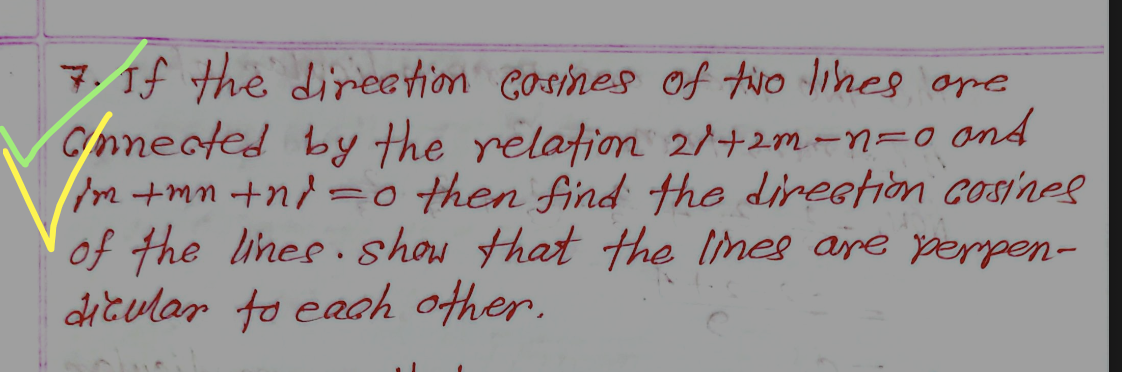 7. If the direction cosines of two lines are
connected by the relation 2l+2m-n=0 and
lm +mn +nl =0 then find the direction cosines
of the lines. show that the lines are perpen-
dicular to each other.